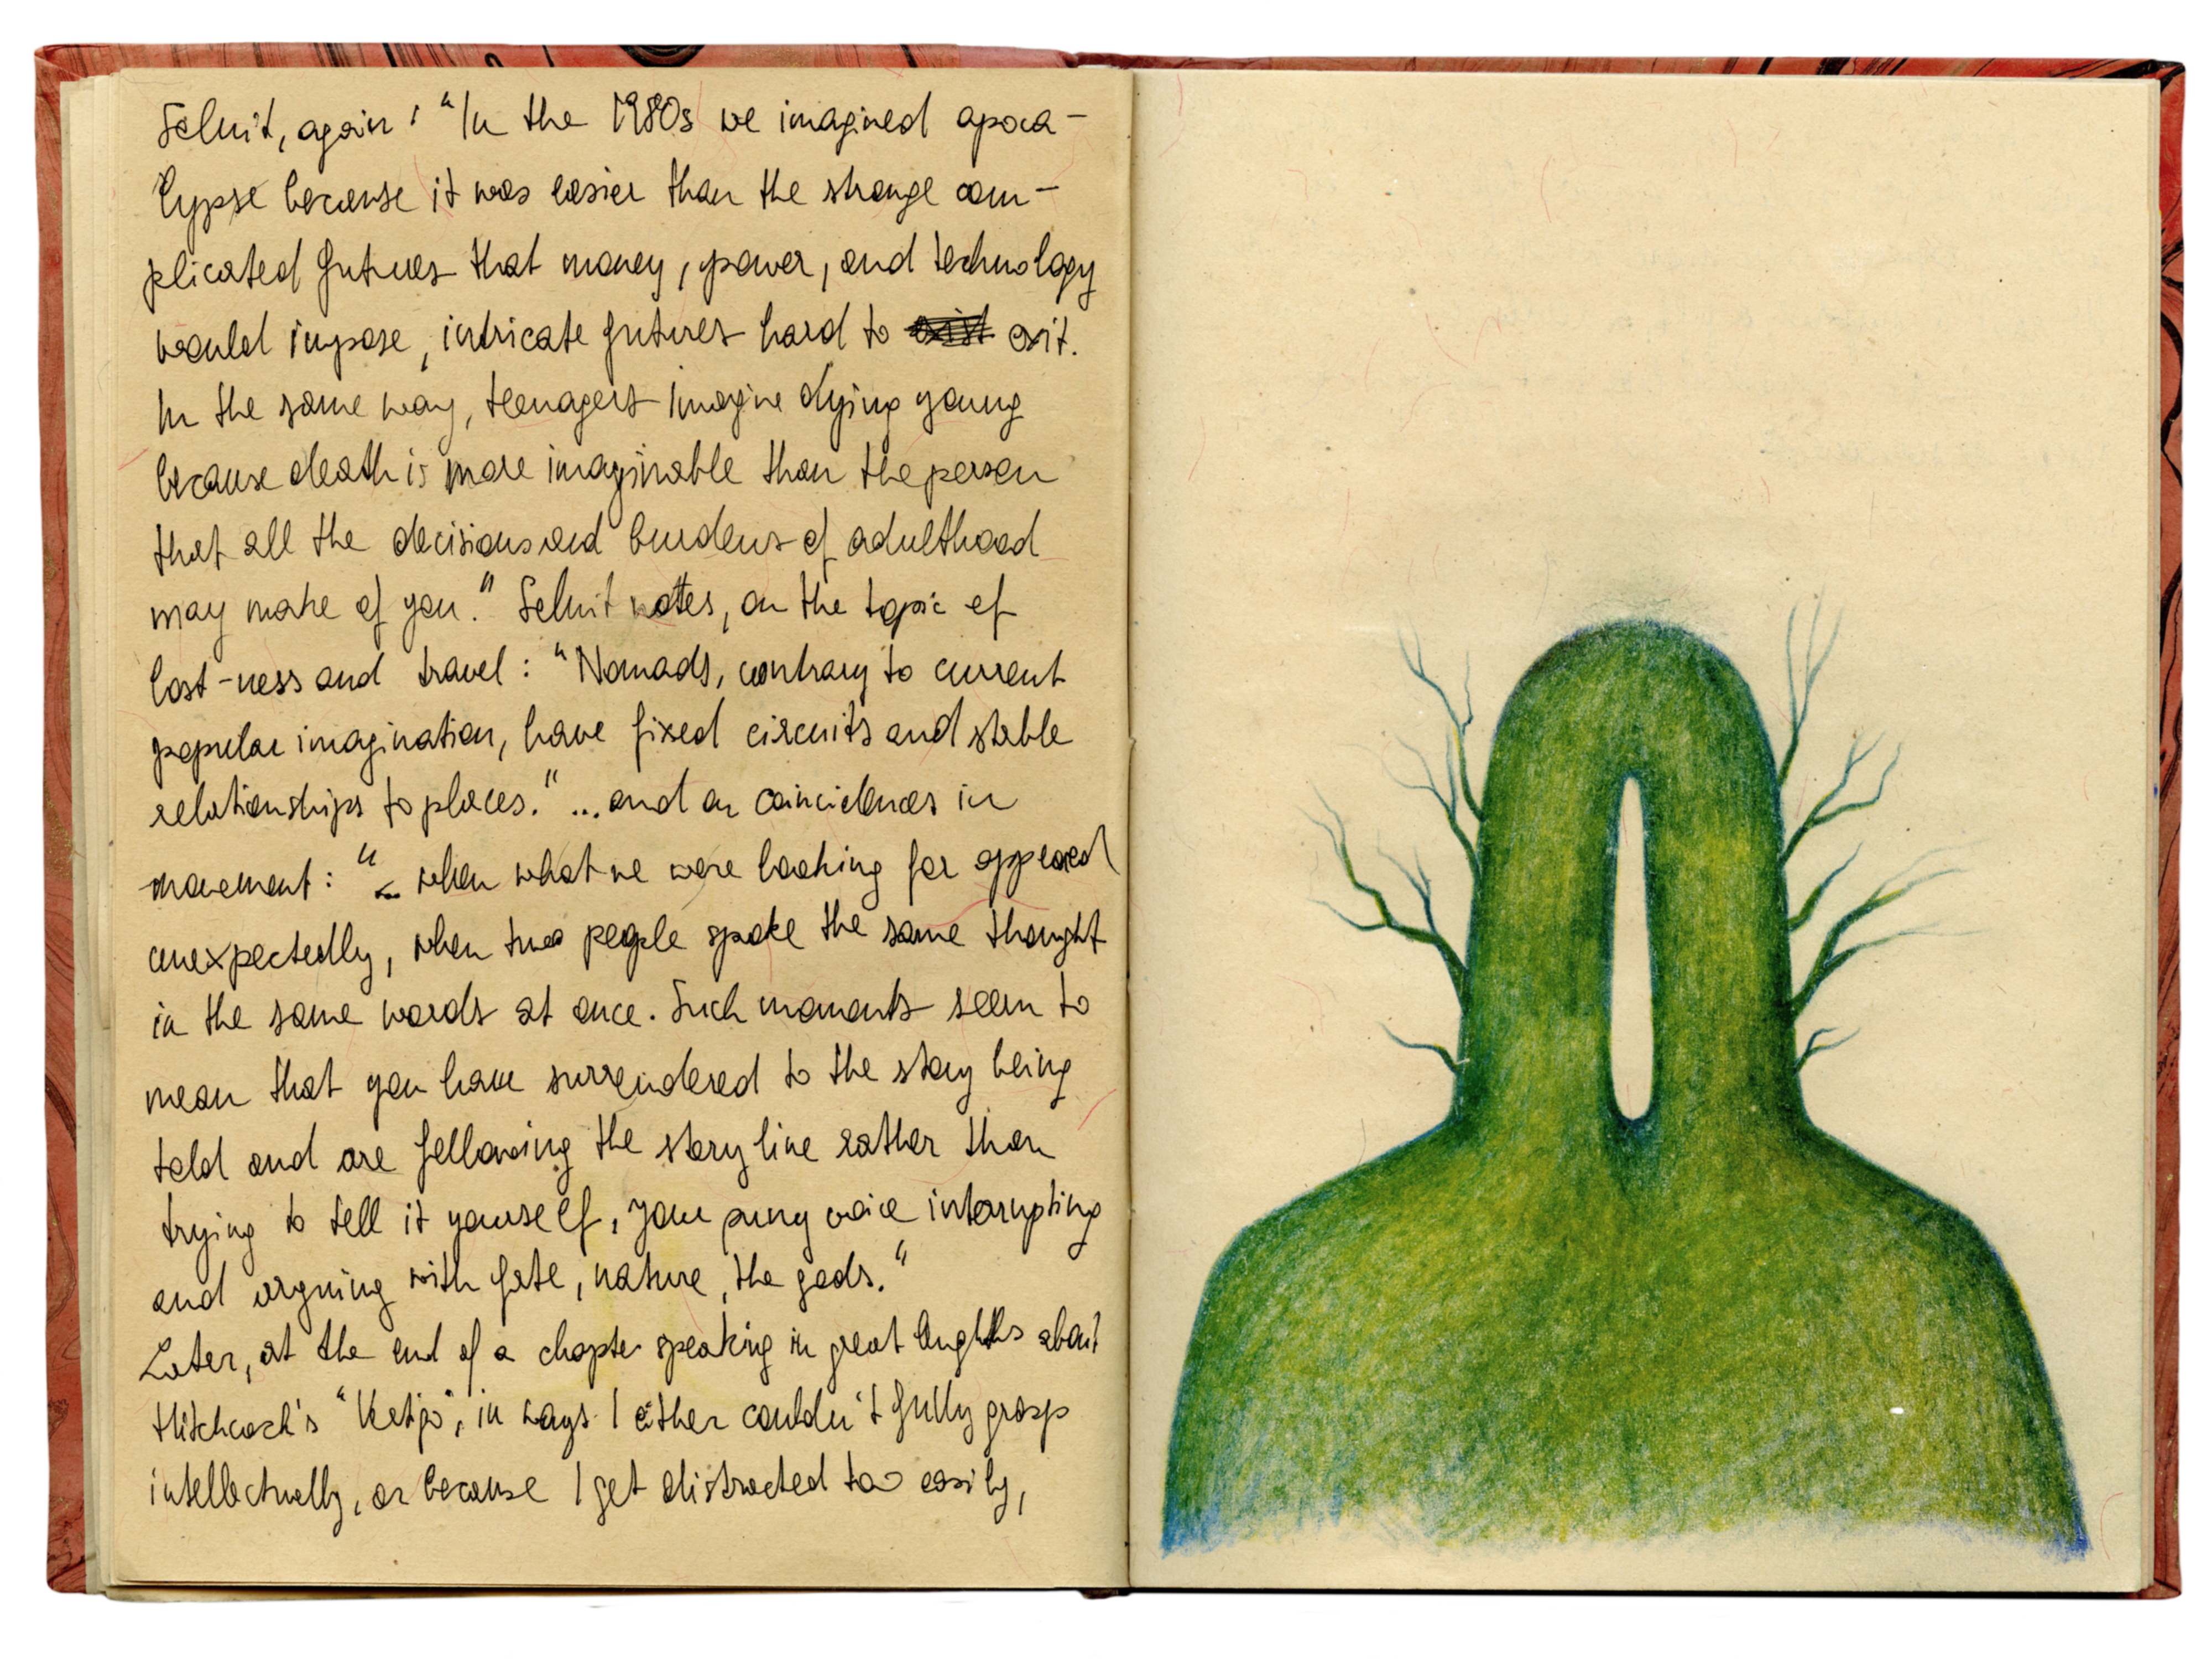 Solnit, again: "In the 1980s we imagined apoca-
lypse because it was easier than the strange com-
plicated futures that money, power, and technology
would impose, intricate futures hard to exist exit.
In the same way, teenagers imagine dying young
because death is more imaginable than the person
that all the decisions and burdens of adulthood
may make of you." Solnit notes, on the topic of
lost-ness and travel: "Nomads, contrary to current
popular imagination, have fixed circuits and stable
relationships to places." ...and on coincidences in
movement: "... when what we were looking for appeared
unexpectedly, when two people spoke the same thought
in the same words at once. Such moments seem to
mean that you have surrendered to the story being
told and are following the story line rather than
trying to tell it yourself, your puny voice interrupting
and arguing with fate, nature, the gods."
Later, at the end of a chapter speaking in great lenghths about
Hitchcock's "Vertigo", in ways I either couldn't fully grasp
intellectually, or because I get distracted too easily,